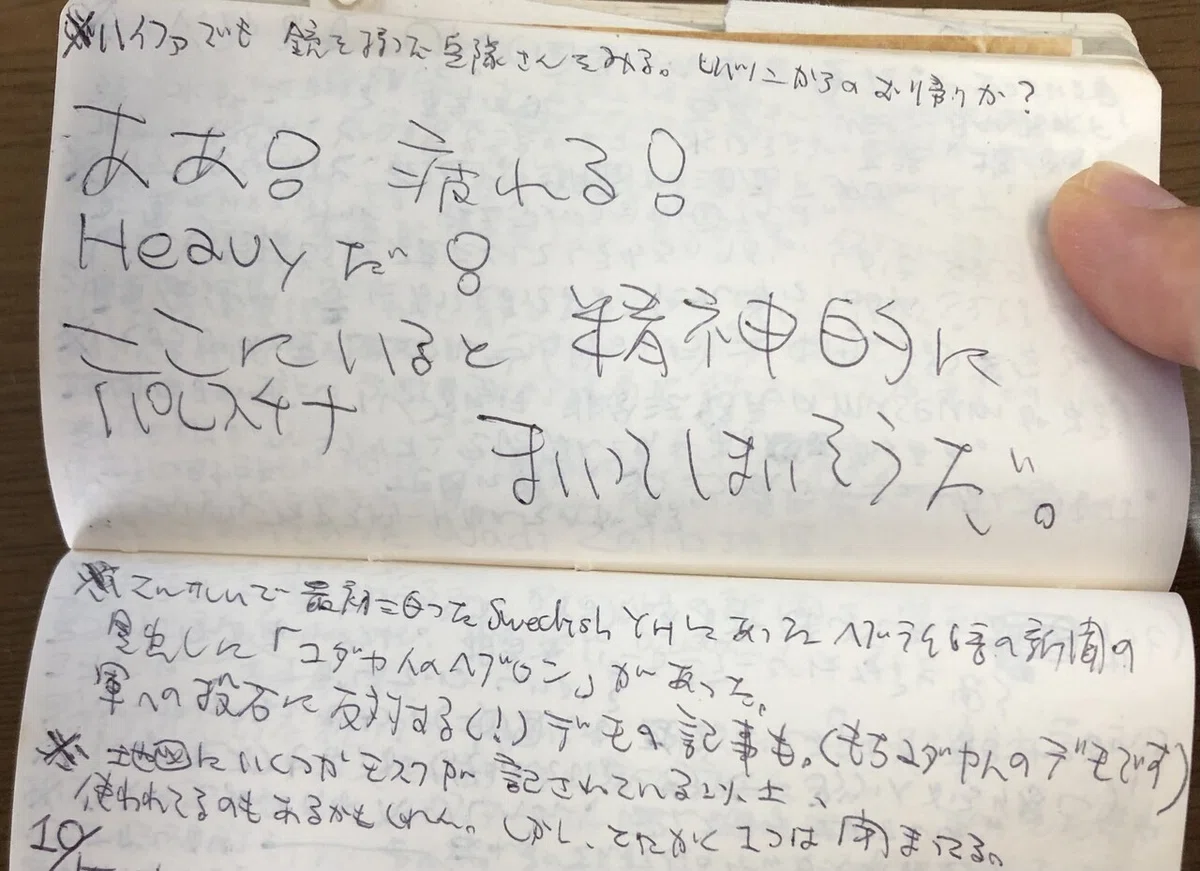 ※ハイファでも 銃を持った兵隊さんをみる。レバノンからのお帰りか?
ああ! 疲れる!
Heavyだ!
ここにいると 精神的に
パレスチナ
まいってしまいそうだ。
※ 最初に泊ったSwedish YHにあったヘブライ語の新聞の
見出しに「ユダヤ人のヘブロン」があった。
軍への投石に反対する(!)デモの記事も。(もちユダヤ人のデモです)
※ 地図にいくつかモスクが記されている以上、
使われてるのもあるかもしれん。しかし、とにかく1つは閉まってる。
10/